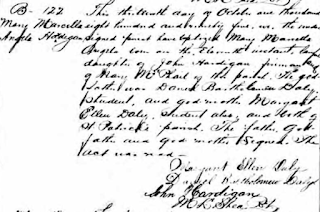 B-122 This thirteenth day of October one thousand
Mary Marcella eight hundred and ninety five, we the under
Angela Hardigan signed priest have baptized Mary Marcella
Angela born on the eleventh instant, lawful
daughter of John Hardigan fireman and
of Mary McPaul of this parish. The god
father was Daniel Bartholomew Daly,
Student, and godmother Margaret
Ellen Daly, Student also, and both of
St Patrick's parish. The father, God-
father and god mother signed. This
act was read.
Margaret Ellen Daly
Daniel Bartholomew Daly
John Hardigan
M. L. Shea, Pt.